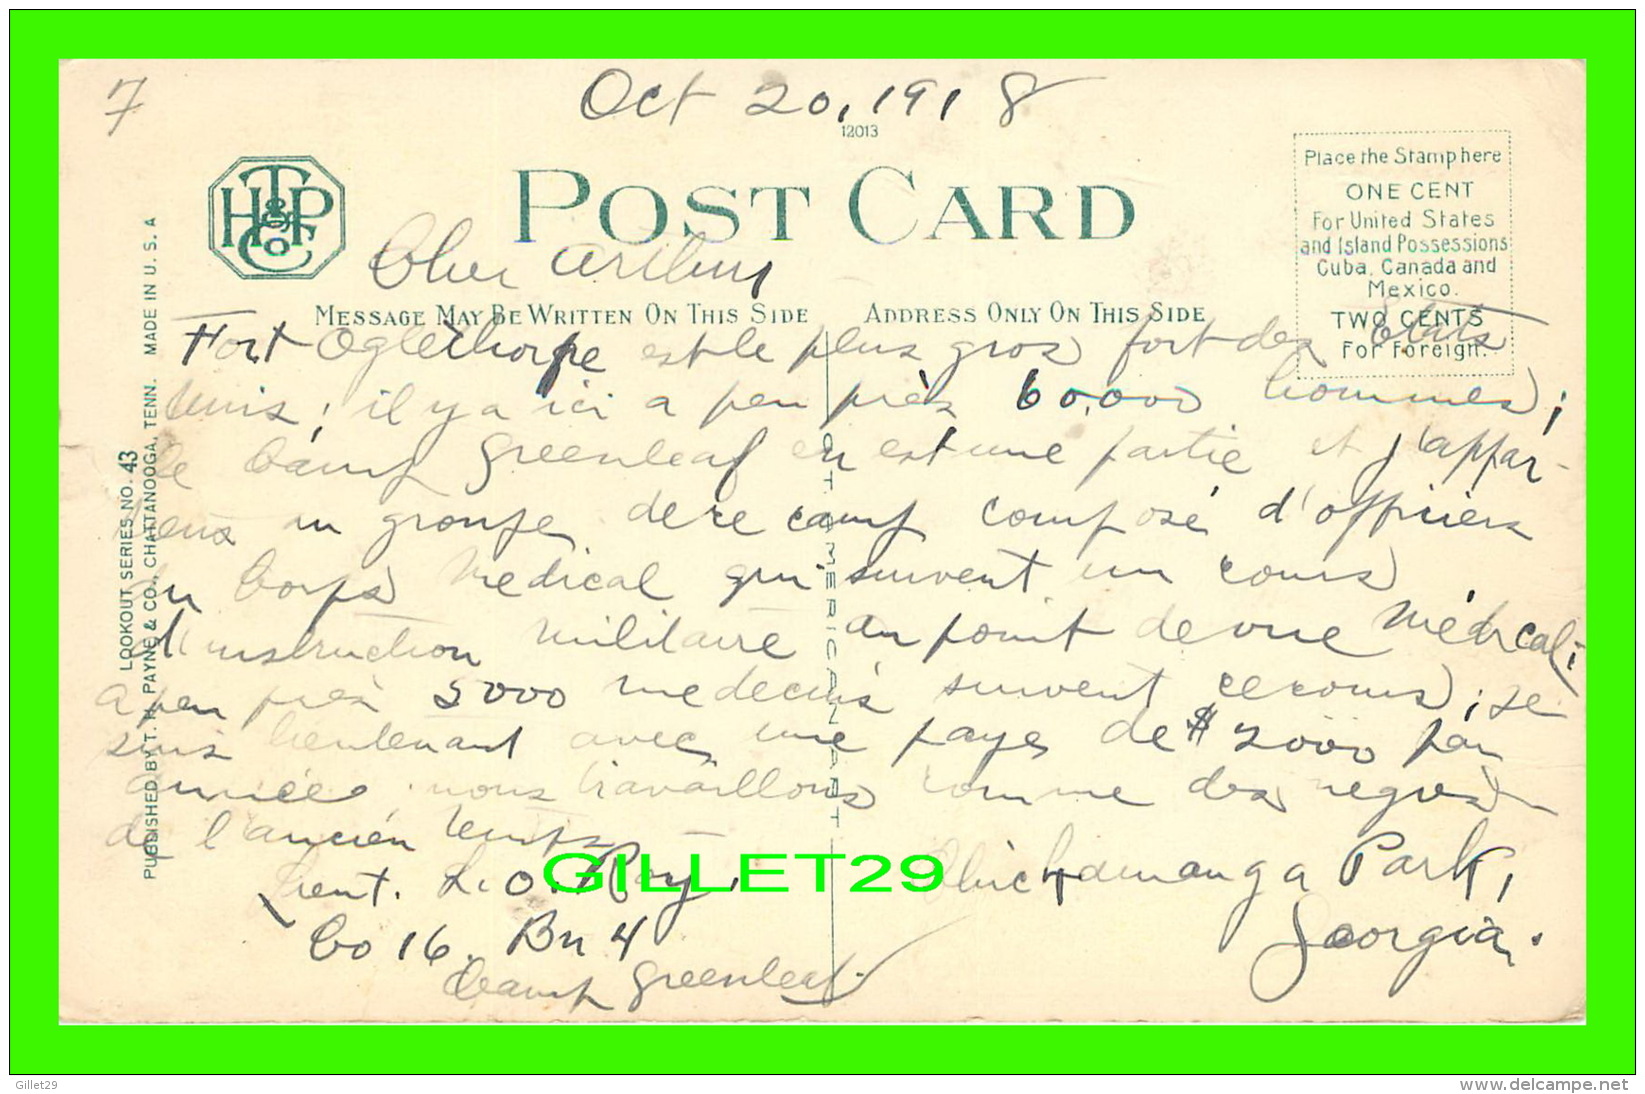 7
Oct 20, 1918
12013
POST CARD
THP & Co
Place the Stamp here
ONE CENT
For United States
and Island Possessions
Cuba, Canada and
Mexico.
TWO CENTS
For Foreign.
Cher Arthur
MESSAGE MAY BE WRITTEN ON THIS SIDE
ADDRESS ONLY ON THIS SIDE
Fort Oglethorpe est le plus gros fort des Etats
Unis; il y a ici a peu près 60,000 hommes;
le Camp Greenleaf en est une partie et j'appar-
tiens au groupe de ce camp composé d'officiers
du Corps Médical qui suivent un cours
d'instruction militaire au point de vue médical;
a peu près 5000 medecins suivent ce cours; je
suis lieutenant avec une paye de $2000 par
année; nous travaillons comme des negres
de l'ancien temps
Lieut. L.O. Roy,
Co 16. Bn 4
Camp Greenleaf.
Chickamauga Park,
Georgia.
C.T. AMERICAN ART
LOOKOUT SERIES NO. 43
PUBLISHED BY T. H. PAYNE & CO., CHATTANOOGA, TENN. MADE IN U. S. A
GILLET29
Gillet29
www.delcampe.net